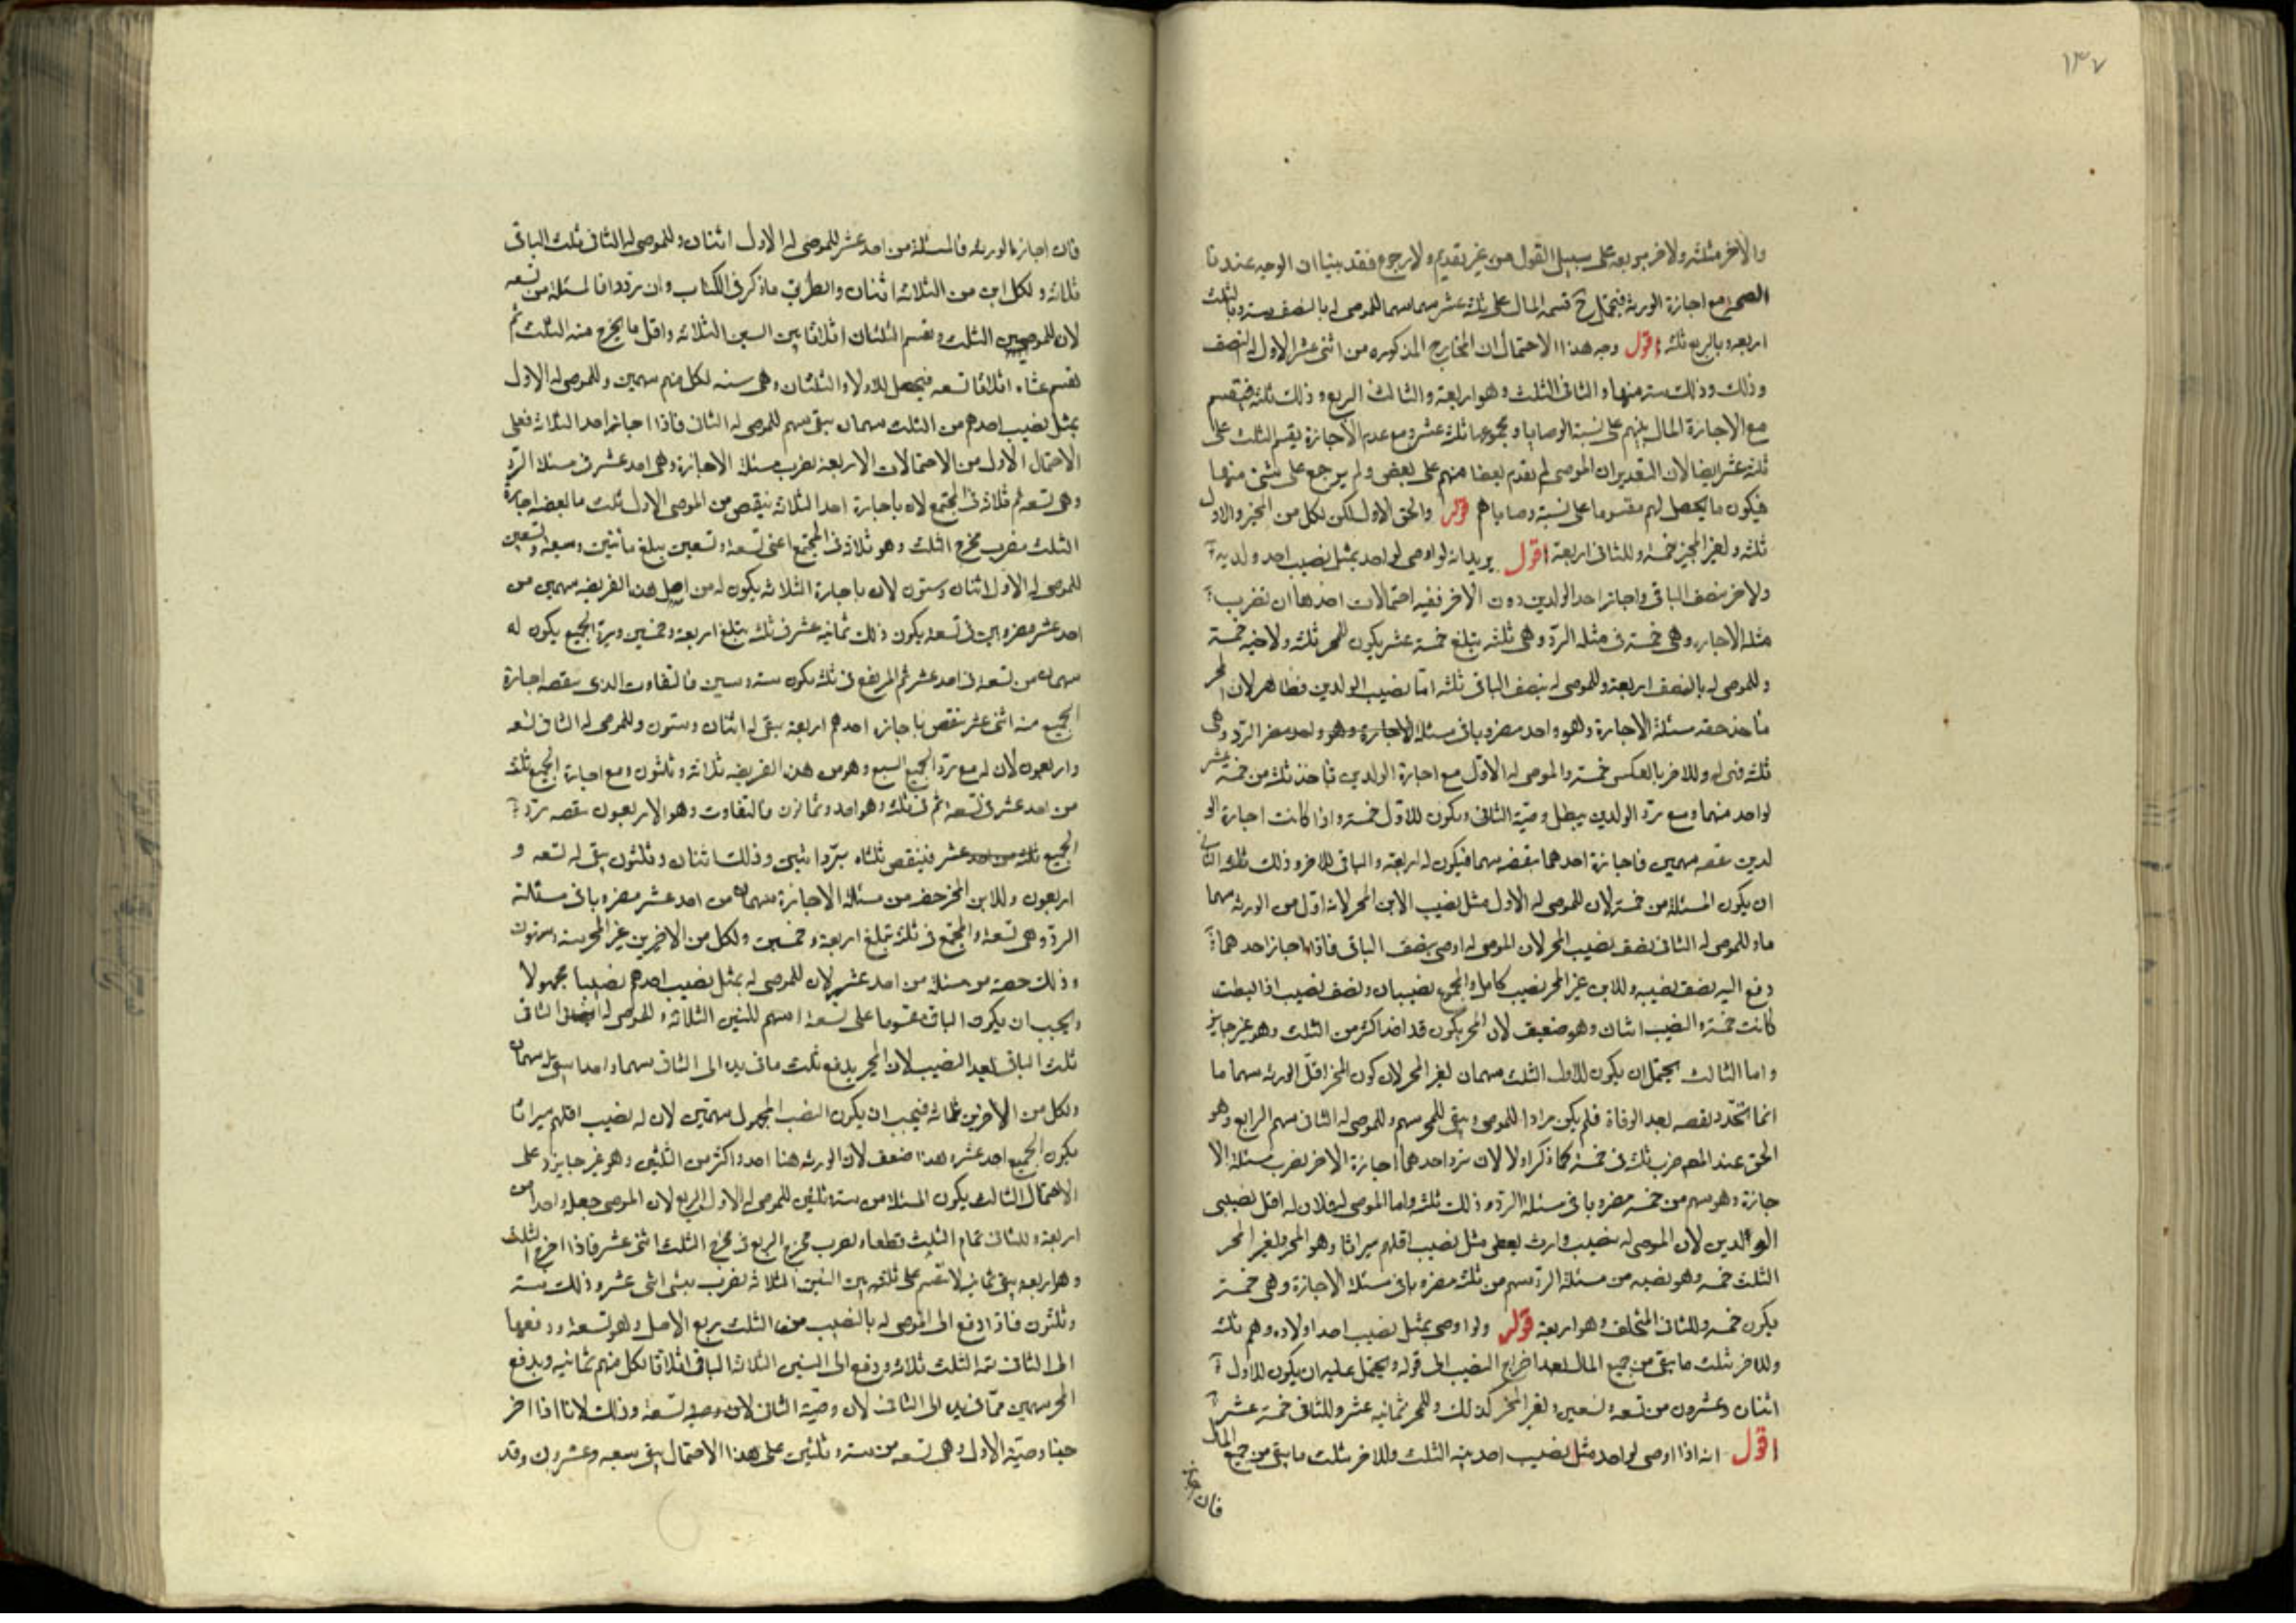 ١٣٧
والآخر مثلثه ولاخر بربعه على سبيل القول من غير تقديم ولا رجوع فقد بينا ان الوجه عندنا
الصحه مع اجازة الورثه فيحتمل ح قسمه المال على ثلثه عشر سهما سهما للموصى له بالنصف سته وبالثلث
اربعه وبالربع ثلثه اقول وجه هذا الاحتمال ان المخارج المذكوره من اثنى عشر الاول له النصف
وذلك وذلك سته منها والثانى الثلث وهو اربعة والثالث الربع وذلك ثلثه فيقسم
مع الاجازة المال بينهم على نسبة الوصايا ومجموعها ثلثه عشر ومع عدم الاجازة يقسم الثلث على
ثلثه عشر ايضا لان التقدير ان الموصى لم يقدم بعضا منهم على بعض ولم يرجع على شئ منها
فيكون ما يحصل لهم مقسوما على نسبة وصاياهم قوله والحق الاول لكن لكل من المجيز والاول
ثلثه ولغير المجيز خمسة وللثانى اربعة اقول يريد انه لو اوصى لواحد بمثل نصيب احد ولديه
ولاخر بنصف الباقى واجاز احد الولدين دون الاخر ففيه احتمالات احدها ان نضرب
مثله الاجازه وهى خمسة فى مثله الرد وهى ثلثه يبلغ خمسة عشر يكون للمجيز ثلثه ولاخيه خمسة
وللموصى له بالنصف اربعة وللموصى له بنصف الباقى ثلثه اما نصيب الولدين فظاهر لان المجيز
يأخذ حقه مسئلة الاجازة وهو واحد مضروبا فى مسئلة الاجازة وهو واحد مضر الرد وهى
ثلثه فهى له وللاخر بالعكس خمسة والموصى له الاول مع اجازة الولدين يأخذ ثلثه من خمسة عشر
لواحد منهما ومع رد الولدين يبطل وصية الثانى ويكون للاول خمسة واذا كانت اجازة الو
لدين نقصه سهمين فاجازة احدهما ينقصه سهما فيكون له اربعة والباقى للاخر وذلك ثلثه الثانى
ان يكون المسئلة من خمسة لان للموصى له الاول مثل نصيب الابن المجيز لانه اقل من الورثه سهما
ماو للموصى له الثانى نصف نصيب المجيز لان الموصى له اوصى بنصف الباقى فاذا اجاز احدهما
دفع اليه نصف نصيبه وللابن غير المجيز نصيب كامل والمجموع نصيبان ونصف نصيب اذا بسطت
كانت خمسة والنصيب اثنان وهو ضعيف لان المجيز يكون قد اخذ اكثر من الثلث وهو غير جايز
واما الثالث يحتمل ان يكون للاول الثلث سهمان لغير المجيز لان كون المجيز اقل الورثه سهما ما
انما تجدد نقصه بعد الوفاة فلم يكن مرادا للموصى ويبقى للمجيز سهم وللموصى له الثانى سهم الرابع وهو
الحق عند المصم ضرب ثلثه فى خمسة كما ذكر اولا لان برد احدهما اجازة الاخر يضرب مسئلة الا
جازة وهو سهم من خمسة مضروبا فى مسئلة الرد وذلك ثلثه واما الموصى له فلان له اقل نصيبى
الولدين لان الموصى له بنصيب وارث يعطى مثل نصيب اقلهم ميراثا وهو المجيز ولغير المجيز
الثلث خمسة وهو نصيبه من مسئلة الرد سهم من ثلثه مضروبا فى مسئلة الاجازة وهى خمسة
يكون خمسه وللثانى المتخلف وهو اربعة قوله ولو اوصى بمثل نصيب احد اولاده وهم ثلثه
وللاخر بثلث ما يبقى من جميع المال بعد اخراج النصيب الى قوله ويحتمل عليه ان يكون للاول
اثنان وعشرون من تسعه وتسعين ولغير المجيز كذلك وللمجيز ثمانية عشر وللثانى خمسة عشر
اقول انه اذا اوصى لواحد مثل نصيب احد بنيه الثلث وللاخر بثلث ما يبقى من جميع المال
فان اجاز
فان اجازه الورثه فالمسئلة من احد عشر للموصى له الاول اثنان وللموصى له الثانى ثلث الباقى
ثلاثة ولكل ابن من الثلاثة اثنان والطريق ما ذكر فى الكتاب وان ردوا فالمسئلة من تسعه
لان للموصيين الثلث ويقسم الثلثان اثلاثا بين البنين الثلاثه واقل ما يخرج منه الثلث ثم
تقسم ثلثاه اثلاثا تسعه فيحصل للاولاد الثلثان وهى سته لكل منهم سهمين وللموصى له الاول
بمثل نصيب احدهم من الثلث سهمان يبقى سهم للموصى له الثانى فاذا اجاز احد الثلاثة فعلى
الاحتمال الاول من الاحتمالات الاربعة نضرب مسئلة الاجازة وهى احد عشر فى مسئلة الرد
وهى تسعه ثم ثلاثة فى المجتمع لان باجازة احد الثلاثة ينقص من الموصى الاول ثلث ما ينقصه اجازة
الثلث فنضرب مخرج الثلث وهو ثلاثة فى المجتمع اعنى تسعة وتسعين يبلغ مأتين وسبعة وتسعين
للموصى له الاول اثنان وستون لان باجازة الثلاثة يكون له من اصل هذه الفريضه سهمين من
احد عشر مضروبين فى تسعة يكون ذلك ثمانيه عشر فى ثلثه يبلغ اربعة وخمسين وبرد الجميع يكون له
سهمان من تسعة فى احد عشر ثم المرتفع فى ثلثه يكون سته وستين فالتفاوت الذى ينقصه اجازة
الجميع منه اثنى عشر ينقص باجازه احدهم اربعة يبقى له اثنان وستون وللموصى له الثانى تسعه
واربعون لان له مع رد الجميع التسع وهو من هذه الفريضه ثلاثة وثلثون ومع اجازة الجميع ثلثه
من احد عشر فى تسعة ثم فى ثلثه وهو احد وثمانون فالتفاوت وهو الاربعون نقصه برد
الجميع ثلثه من احد عشر فينقص ثلثاه برد اثنين وذلك اثنان وثلثون يبقى له تسعه و
اربعون وللابن المجيز حقه من مسئلة الاجازة سهمان من احد عشر مضروبا فى مسئلة
الرد وهى تسعة والمجتمع فى ثلثه تبلغ اربعة وخمسين ولكل من الاخيرين غير المجيز سته وستون
وذلك حصته من مسئلة من احد عشر لان للموصى له بمثل نصيب احدهم نصيبا مجهولا
ويجب ان يكون الباقى مقسوما على تسعة اسهم للبنين الثلاثه وللموصى له الثانى
ثلث الباقى بعد النصيب لان المجيز يدفع ثلث ما فى يده الى الثانى سهما واحدا يبقى له سهمان
ولكل من الاخرين ثلثة فيجب ان يكون النصيب المجهول سهمين لان له نصيب اقلهم ميراثا
يكون الجميع احد عشر وهذا ضعف لان الورثه هنا اخذوا اكثر من الثلثين وهو غير جايز وعلى
الاحتمال الثالث يكون المسئلة من ستة وثلثين للموصى له الاول الربع لان الموصى جعله واحدا من
اربعة وللثانى تمام الثلث قطعا ونضرب مخرج الربع فى مخرج الثلث اثنى عشر فاذا اخرج الثلث
وهو اربعه يبقى ثمانيه لا تنقسم على ثلثه بين البنين الثلاثه نضرب فى اثنى عشر وذلك سته
وثلثون فاذا دفع الى الموصى له بالنصيب من الثلث ربع الاصل وهو تسعة ودفعها
الى الثانى تتمه الثلث ثلاثه ودفع الى البنين الثلاثه الباقى اثلاثا لكل منهم ثمانيه ويدفع
المجيز سهمين مما فى يده الى الثانى لان وصية الثانى لان وصيه تسعة وذلك لانا اذا اخر
جنا وصية الاول وهى تسعه من ستة وثلثين على هذا الاحتمال يبقى سبعه وعشرون وقد